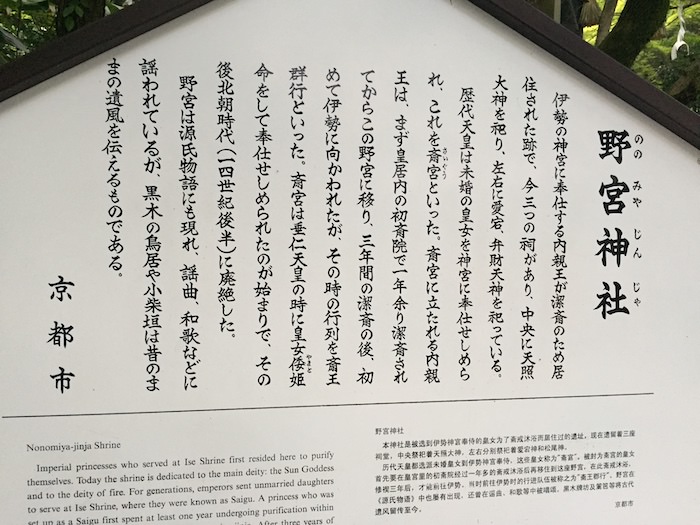 野宮神社
ののみやじんじゃ
伊勢の神宮に奉仕する内親王が潔斎のため居
住された跡で、今三つの祠があり、中央に天照
大神を祀り、左右に愛宕、弁財天神を祀っている。
歴代天皇は未婚の皇女を神宮に奉仕せしめら
れ、これを斎宮といった。斎宮に立たれる内親
さいぐう
王は、まず皇居内の初斎院で一年余り潔斎され
てからこの野宮に移り、三年間の潔斎の後、初
めて伊勢に向かわれたが、その時の行列を斎王
群行といった。斎宮は垂仁天皇の時に皇女倭姫
やまと
命をして奉仕せしめられたのが始まりで、その
後北朝時代(一四世紀後半)に廃絶した。
野宮は源氏物語にも現れ、謡曲、和歌などに
謡われているが、黒木の鳥居や小柴垣は昔のま
まの遺風を伝えるものである。
京都市
Nonomiya-jinja Shrine
Imperial princesses who served at Ise Shrine first resided here to purify
themselves. Today the shrine is dedicated to the main deity: the Sun Goddess
and to the deity of fire. For generations, emperors sent unmarried daughters
to serve at Ise Shrine, where they were known as Saigu. A princess who was
set up as a Saigu first spent at least one year undergoing purification within
After three years of
野宫神社
本神社是被选到伊势神宫奉侍的皇女为了斋戒沐浴而居住过的遗址，现在遗留着三座
祠堂，中央祭祀着天照大神，左右分别祭祀着爱宕神和松尾神。
历代天皇都选派未婚皇女到伊势神宫奉侍，这些皇女称为“斋宫”。被封为斋宫的皇女
首先要在皇宫里的初斋院经过一年多的斋戒沐浴后再移住到这座野宫，在此斋戒沐浴、
修禊三年后，才动前往伊势，当时前往伊势时的行进队伍被称之为“斋王群行”。野宫在
《源氏物语》中也屡有出现，还曾在谣曲、和歌等中被唱颂，黑木牌坊及篱笆等将古代
遗风留传至今。
京都市